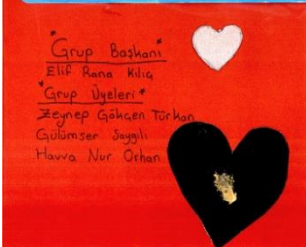 "Grup Başkanı"
Elif Rana Kılıç
"Grup Üyeleri"
Zeynep Gökçen Türkan
Gülümser Saygılı
Havva Nur Orhan